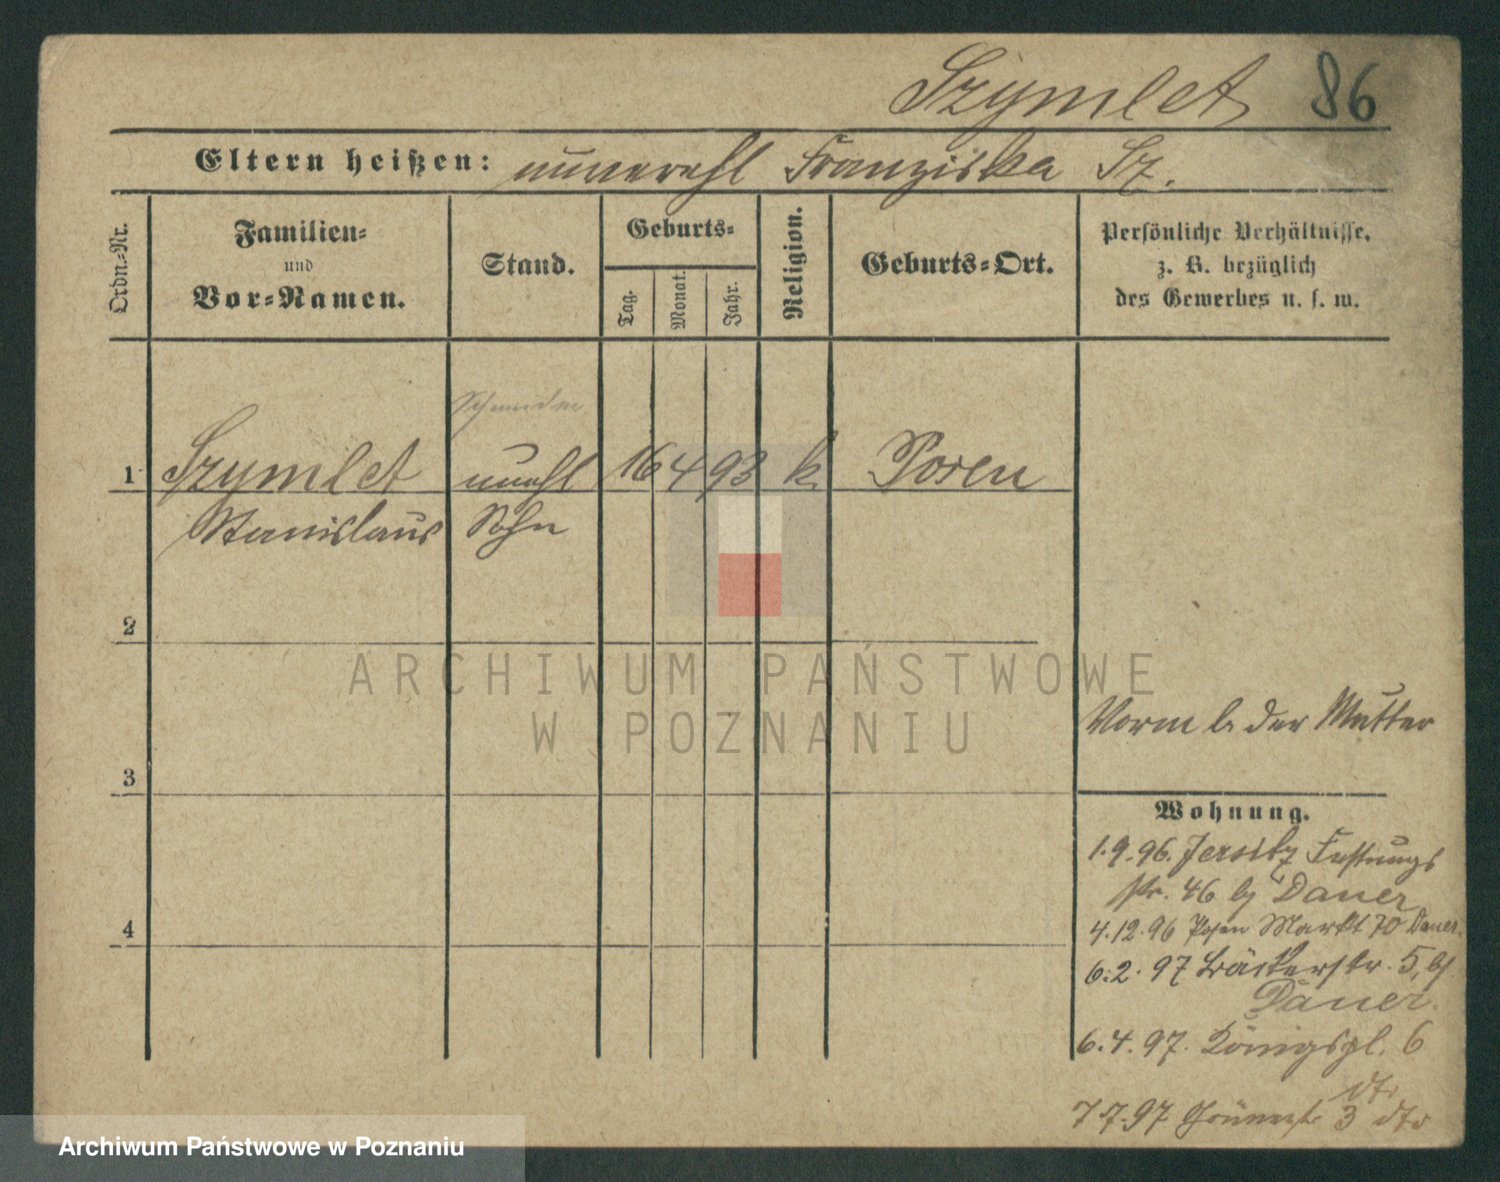 Szymlet 86
Eltern heißen: unverehl Franziska Sz.
Ordn.-Nr.
Familien-
und
Vor-Namen.
Stand.
Geburts-
Tag.
Monat.
Jahr.
Religion.
Geburts-Ort.
Persönliche Verhältnisse,
z. B. bezüglich
des Gewerbes u. s. w.
1 Szymlet unehl 16 4 93 k. Posen
Stanislaus Sohn
2
ARCHIWUM PAŃSTWOWE
W POZNANIU
Vorm b. der Mutter
3
Wohnung.
1.9.96. Jersitz Festungs
str. 46 bj Dauer
4
4.12.96 Posen Markt 70 Dauer
6.2.97 Bäckerstr. 5, bj
Dauer.
6.4.97. Königspl. 6
dto
7.7.97 3 dto
Archiwum Państwowe w Poznaniu